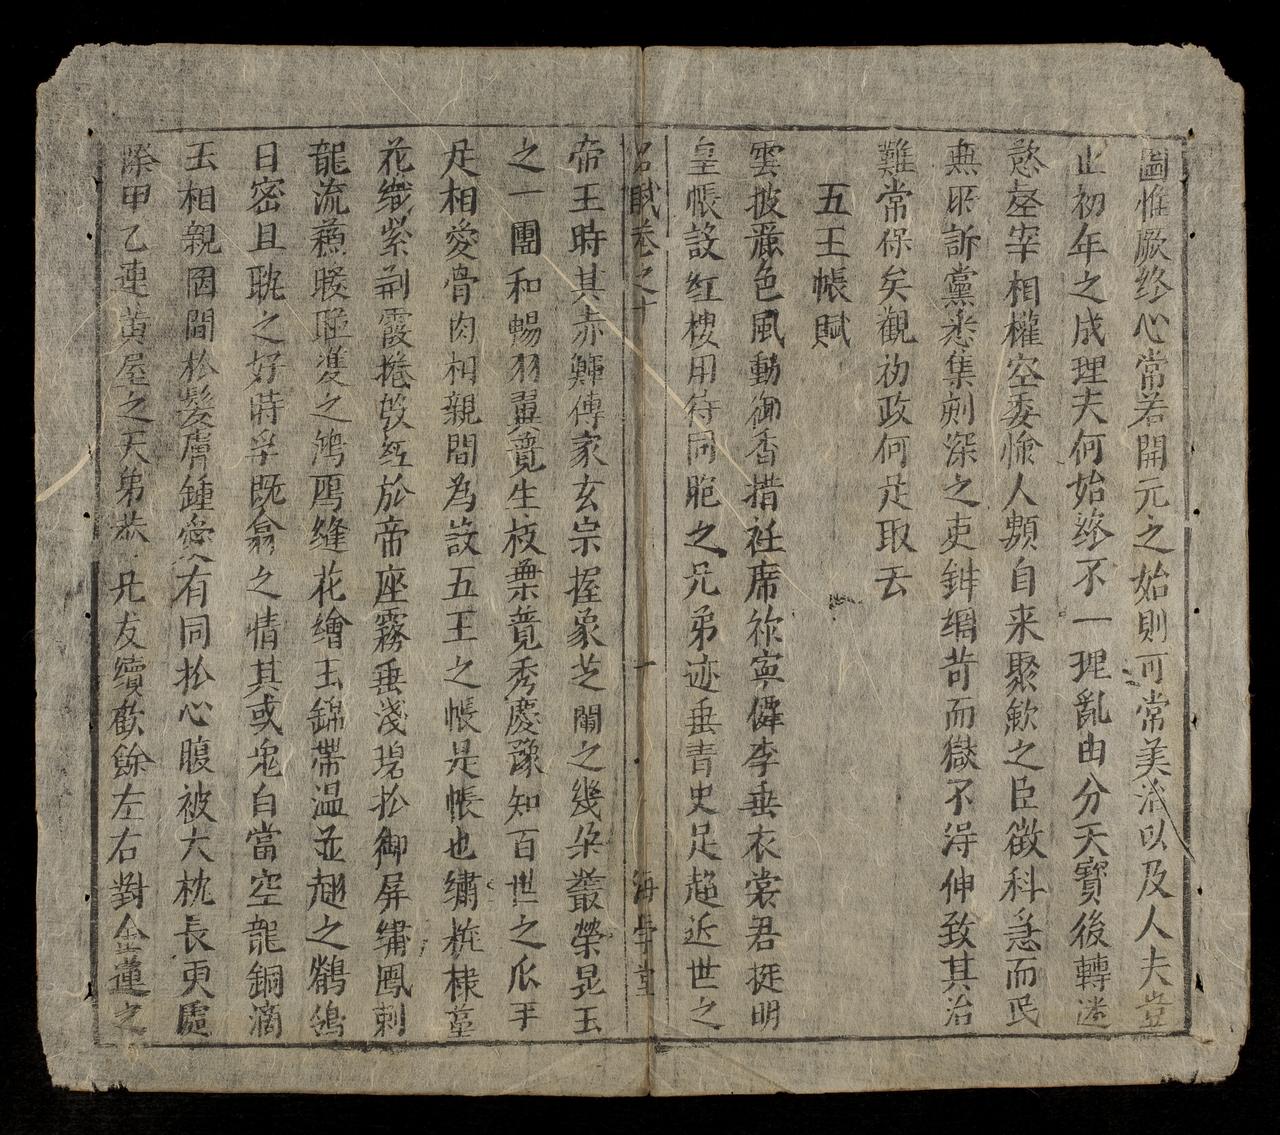 圖惟厥終心常若開元之始則可常美治以及人夫豈
止初年之成理夫何始終不一理亂由分天寶後轉迷
慾壑宰相權空委憸人顋自来聚歛之臣徵科急而民
無所訴黨悉集刻深之吏鉗綱苛而獄不淂伸致其治
難常保矣觀初政何足取云
五王帳賦
雲披癡色風動御香措衽席於寧僻李垂衣裳君挺明
皇帳設紅樓用待同胞之兄弟迹垂青史足超近世之
帝王時其赤鯶傳家玄宗握象芝闌之幾朵叢榮晃玉
之一團和暢羽翼竟生枝葉競秀慶豫知百世之瓜手
足相愛骨肉相親間為設五王之帳是帳也繡梳棣萼
花織紫荊霞捲殷紅於帝座霧垂淺碧扵御屏繡鳳刺
龍流蘓暖聯雙之鴻鴈縫花繪玉錦帶温並翹之鶺鴒
日密且耽之好時孚既翕之情其或兔白當空龍銅滴
玉相親罔間扵髮膚鍾愛有同扵心腹被大枕長更處
際甲乙連黄屋之天弟恭兄友續歡餘左右對金蓮之
名賦卷之十 一 海學堂